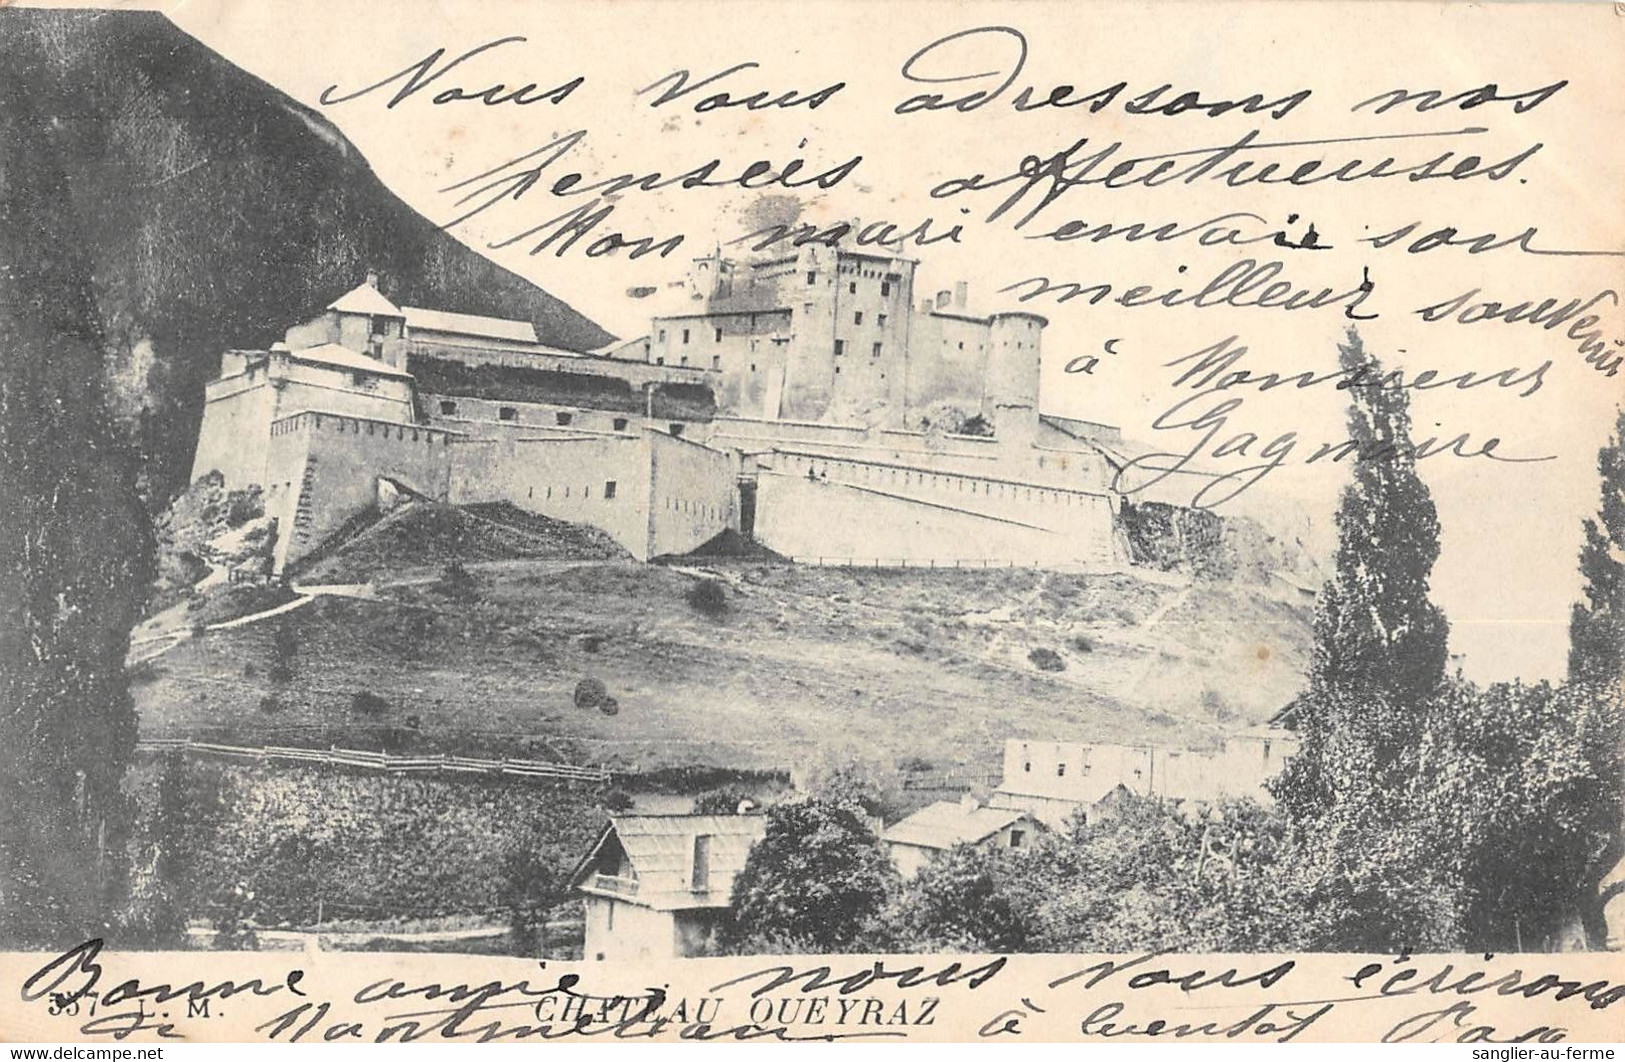 Nous vous adressons nos
pensées affectueuses.
Mon mari envoie son
meilleur souvenir
à Monsieur
Gagmire
Bonne amie, nous vous écrirons
557 L. M. CHATEAU QUEYRAZ
de à bientôt
sanglier-au-ferme
delcampe.net